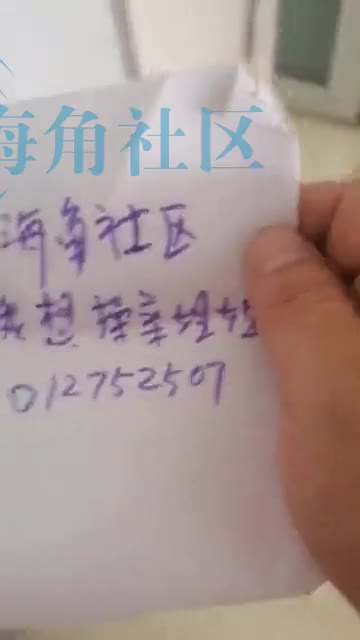 海角社区
海角社区
我想
012752507